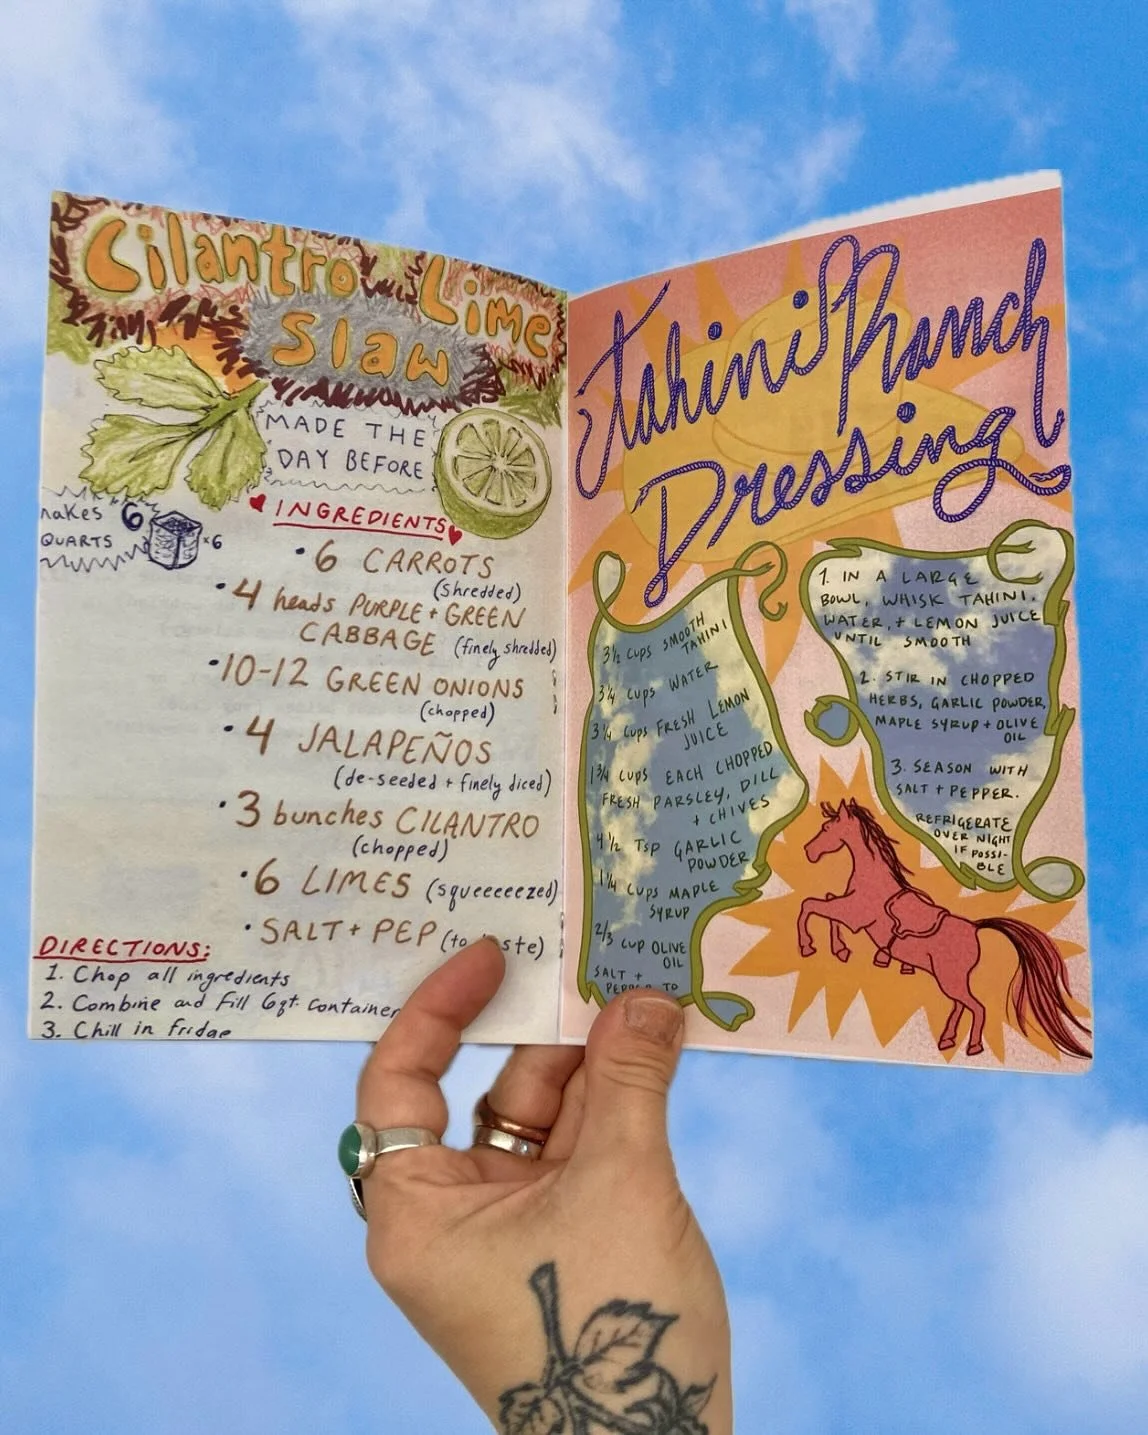 Cilantro Lime
Slaw
MADE THE
DAY BEFORE
makes 6
QUARTS
×6
INGREDIENTS
• 6 CARROTS
(shredded)
• 4 heads PURPLE + GREEN
CABBAGE (finely shredded)
• 10-12 GREEN ONIONS
(chopped)
• 4 JALAPEÑOS
(de-seeded + finely diced)
• 3 bunches CILANTRO
(chopped)
• 6 LIMES (squeeeeezed)
• SALT + PEP (to
DIRECTIONS:
1. Chop all ingredients
2. Combine and Fill 6qt. container
3. Chill in fridge
Tahini Ranch
Dressing
3 1/2 CUPS SMOOTH
TAHINI
3 1/4 CUPS WATER
3 1/4 CUPS FRESH LEMON
JUICE
1 3/4 CUPS EACH CHOPPED
FRESH PARSLEY, DILL
+ CHIVES
4 1/2 TSP GARLIC
POWDER
1 1/4 CUPS MAPLE
SYRUP
2/3 CUP OLIVE
OIL
SALT +
PEPPER TO
1. IN A LARGE
BOWL, WHISK TAHINI,
WATER, + LEMON JUICE
UNTIL SMOOTH
2. STIR IN CHOPPED
HERBS, GARLIC POWDER,
MAPLE SYRUP + OLIVE
OIL
3. SEASON WITH
SALT + PEPPER.
REFRIGERATE
OVER NIGHT
IF POSSI-
BLE